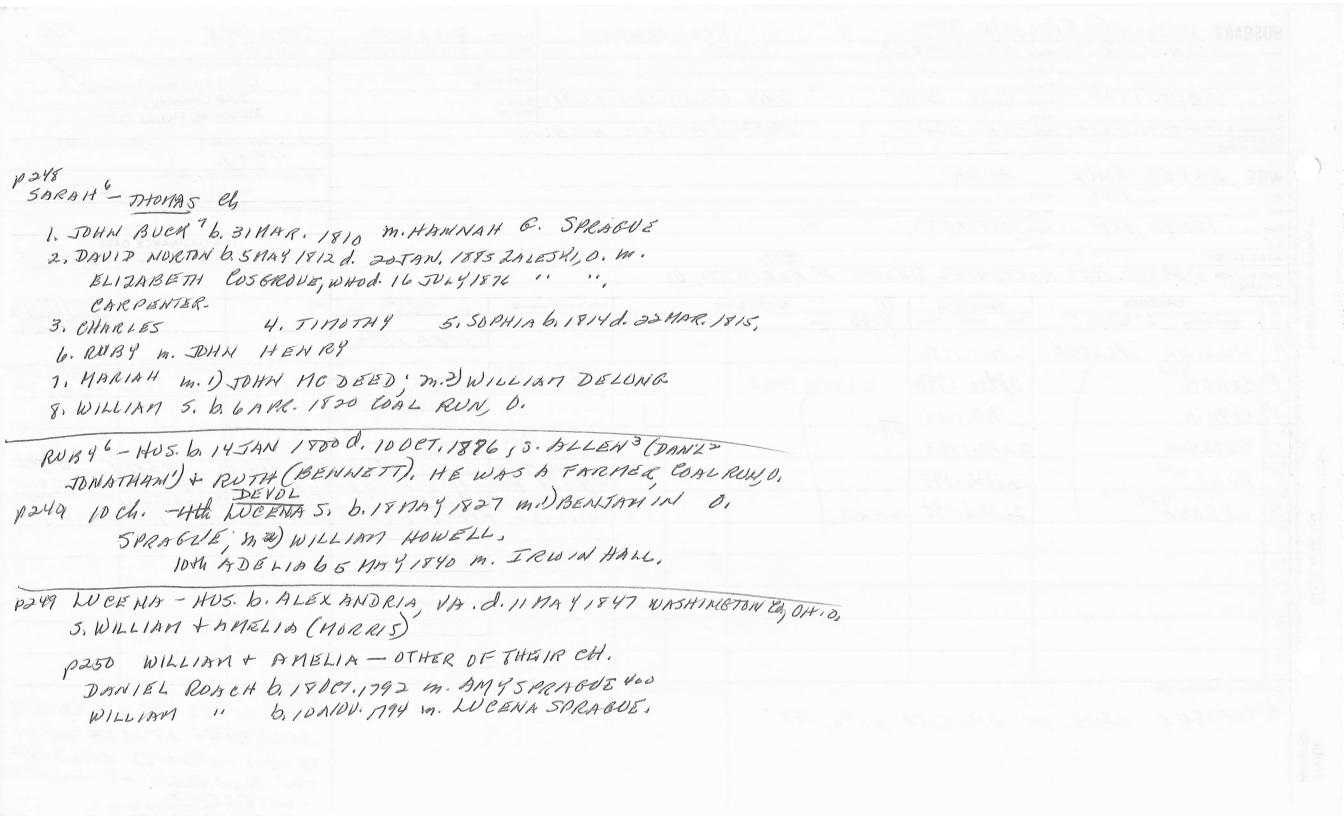 p248
SARAH⁶ – THOMAS Ch
1. JOHN BUCK⁷ b. 31 MAR. 1810 m. HANNAH G. SPRAGUE
2. DAVID NORTON b. 5 MAY 1812 d. 20 JAN. 1885 ZALESKI, O. m.
ELIZABETH COSGROVE, WHO d. 16 JULY 1876 " ",
CARPENTER.
3. CHARLES 4. TIMOTHY 5. SOPHIA b. 1814 d. 22 MAR. 1815.
6. RUBY m. JOHN HENRY
7. MARIAH m. 1) JOHN MCDEED; m. 2) WILLIAM DELONG
8. WILLIAM S. b. 6 APR. 1820 COAL RUN, O.
RUBY⁶ – HUS. b. 14 JAN 1800 d. 10 OCT. 1886, S. ALLEN³ (DAN'L²
JONATHAN¹) + RUTH (BENNETT). HE WAS A FARMER, COAL RUN, O.
DEVOL
p249 10 ch. – 4th LUCENA S. b. 18 MAY 1827 m. 1) BENJAMIN O.
SPRAGUE; m 2) WILLIAM HOWELL.
10th ADELIA b 5 MAY 1840 m. IRWIN HALL.
p249 LUCENA – HUS. b. ALEXANDRIA, VA. d. 11 MAY 1847 WASHINGTON Co, OH.
S. WILLIAM + AMELIA (MORRIS)
p250 WILLIAM + AMELIA — OTHER OF THEIR CH.
DANIEL ROACH b. 18 OCT. 1792 m. AMY SPRAGUE 400
WILLIAM " b. 10 NOV. 1794 m. LUCENA SPRAGUE.